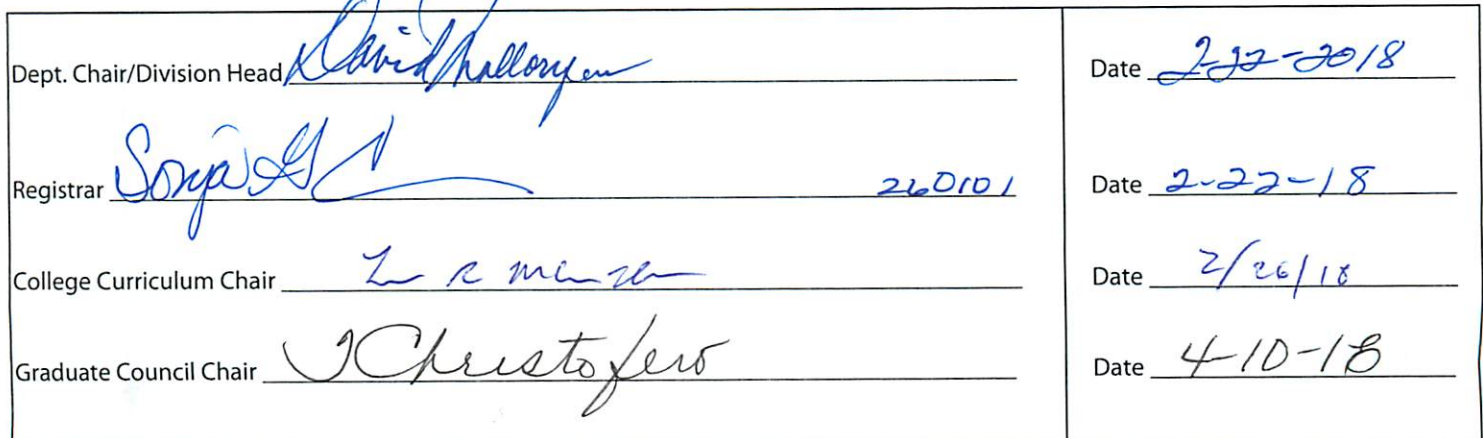 Dept. Chair/Division Head David Mallory Date 2-22-2018
Registrar Sonja G 260101 Date 2-22-18
College Curriculum Chair Date 2/26/18
Graduate Council Chair J Christofero Date 4-10-18